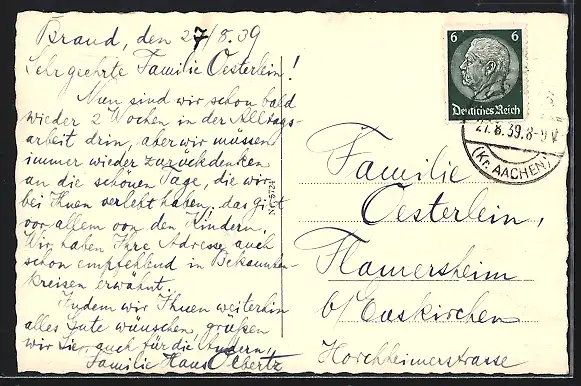 Brand, den 27/8.39
Sehr geehrte Familie Oesterlein!
Nun sind wir schon bald
wieder 2 Wochen in der Alltags-
arbeit drin, aber wir müssen
immer wieder zurückdenken
an die schönen Tage, die wir
bei Ihnen verlebt haben, das gilt
vor allem von den Kindern.
Wir haben Ihre Adresse auch
schon empfehlend in Bekannten-
kreisen erwähnt.
Indem wir Ihnen weiterhin
alles Gute wünschen, grüßen
wir Sie, auch für die andern,
Familie Hans Olbertz
6 6
Deutsches Reich
27.8.39.8-9V
(Kr. AACHEN)
Familie
Oesterlein,
Flamersheim
b/Euskirchen
Horchheimerstrasse